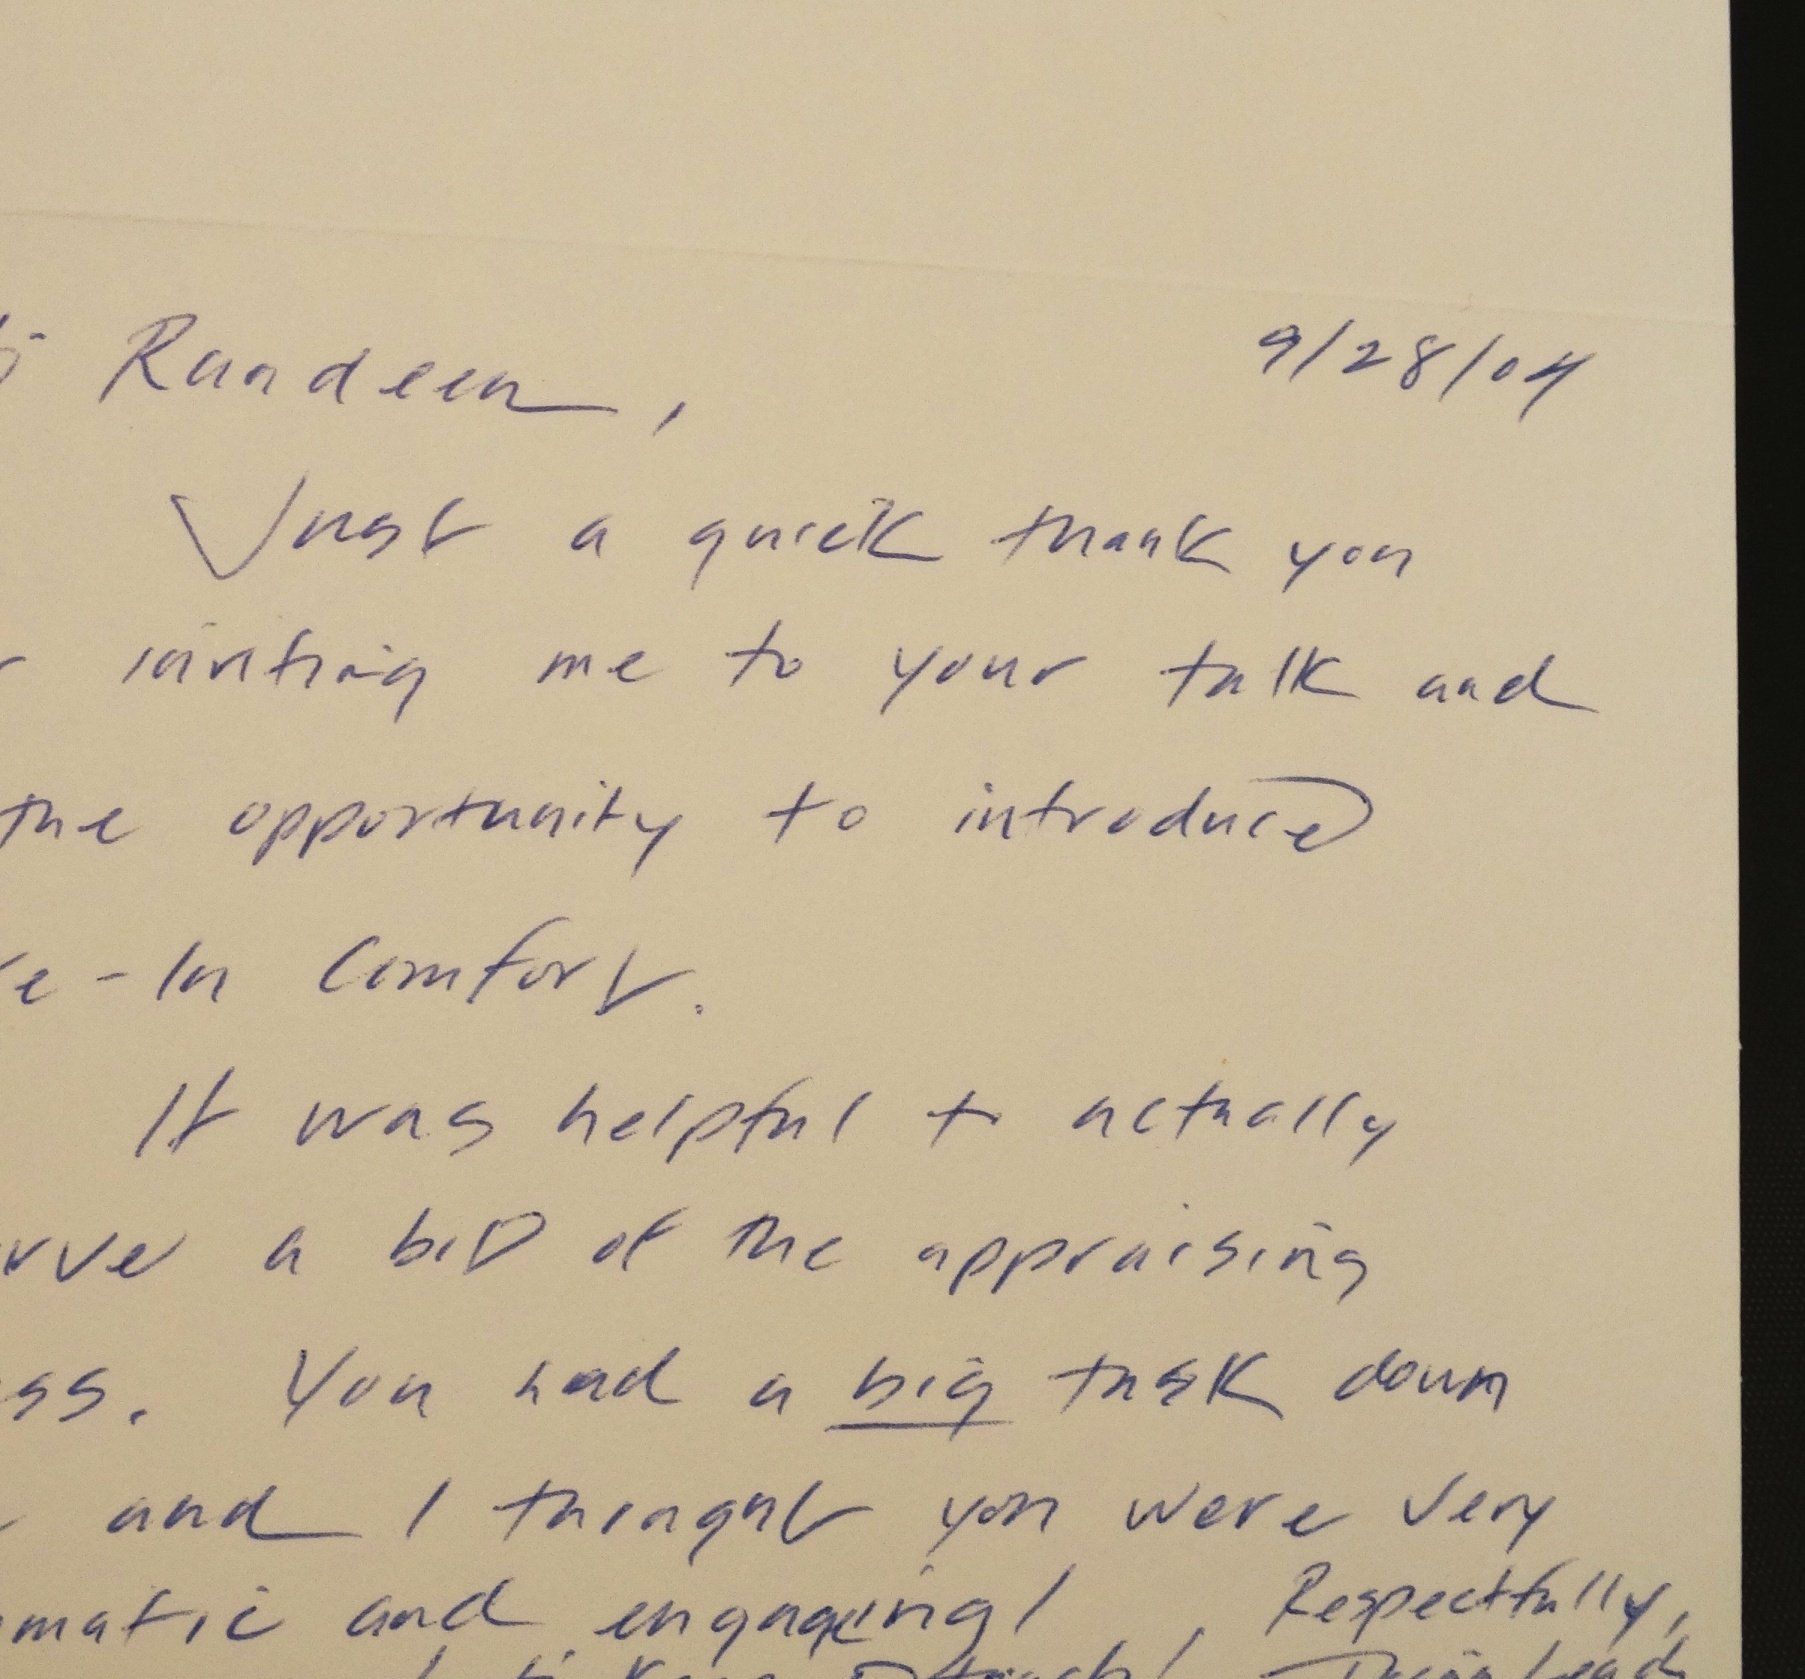 Randeen, 9/28/04
Just a quick thank you
inviting me to your talk and
the opportunity to introduce
-In Comfort.
It was helpful to actually
a bit of the appraising
You had a big task down
and I thought you were very
and engaging! Respectfully,